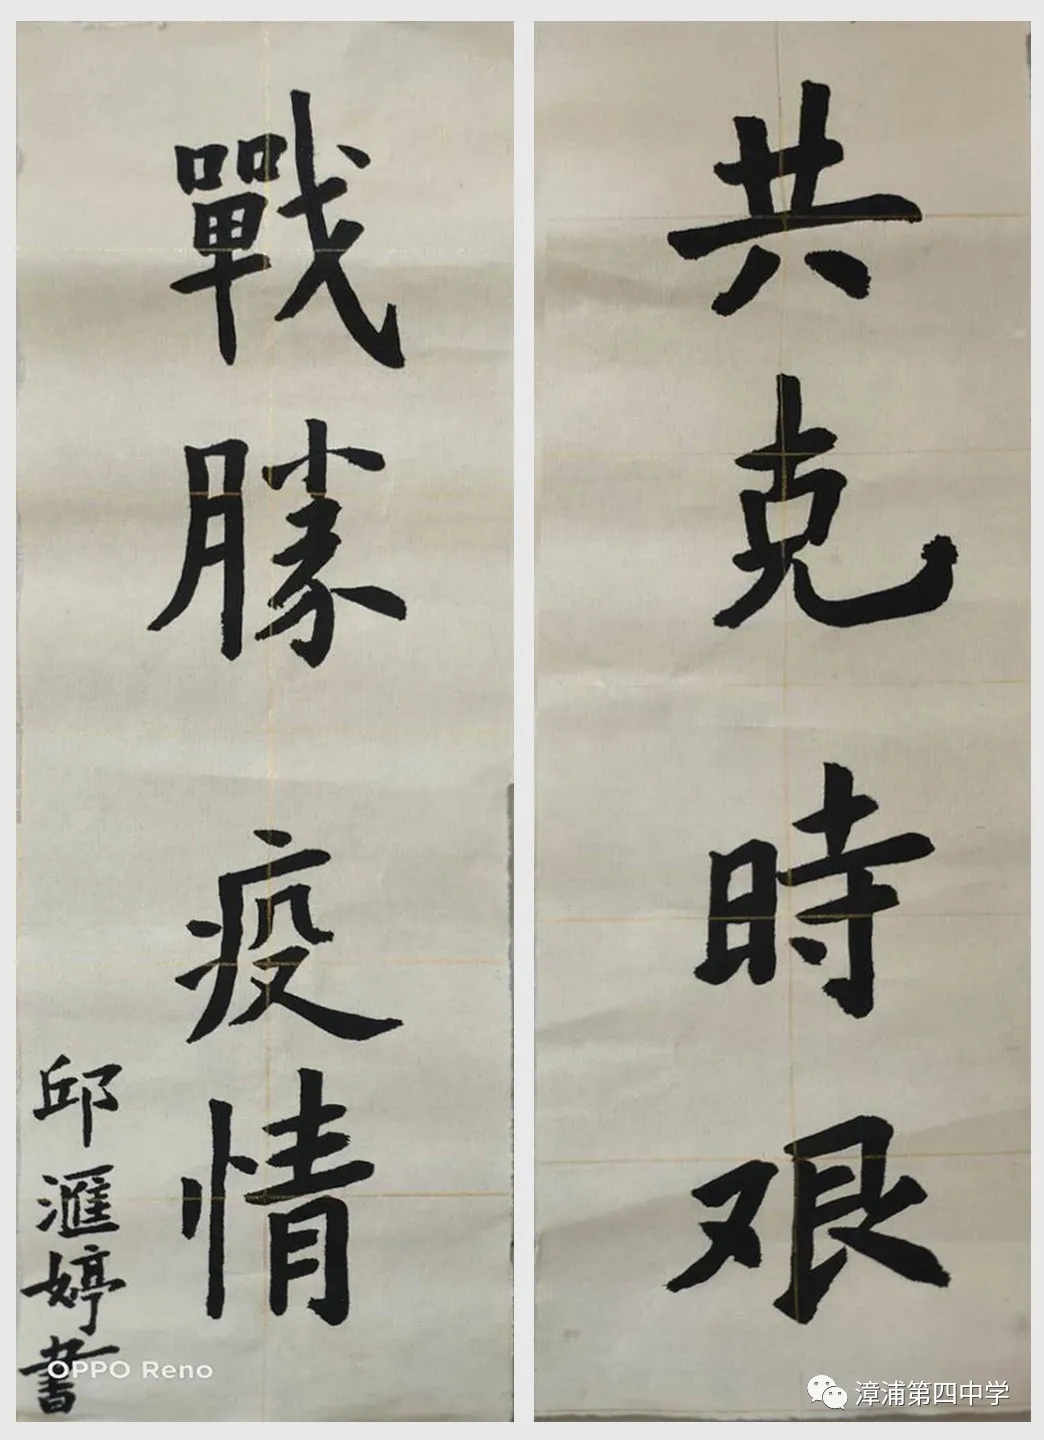 共克時艱
戰勝疫情
邱滙婷書
OPPO Reno
漳浦第四中学